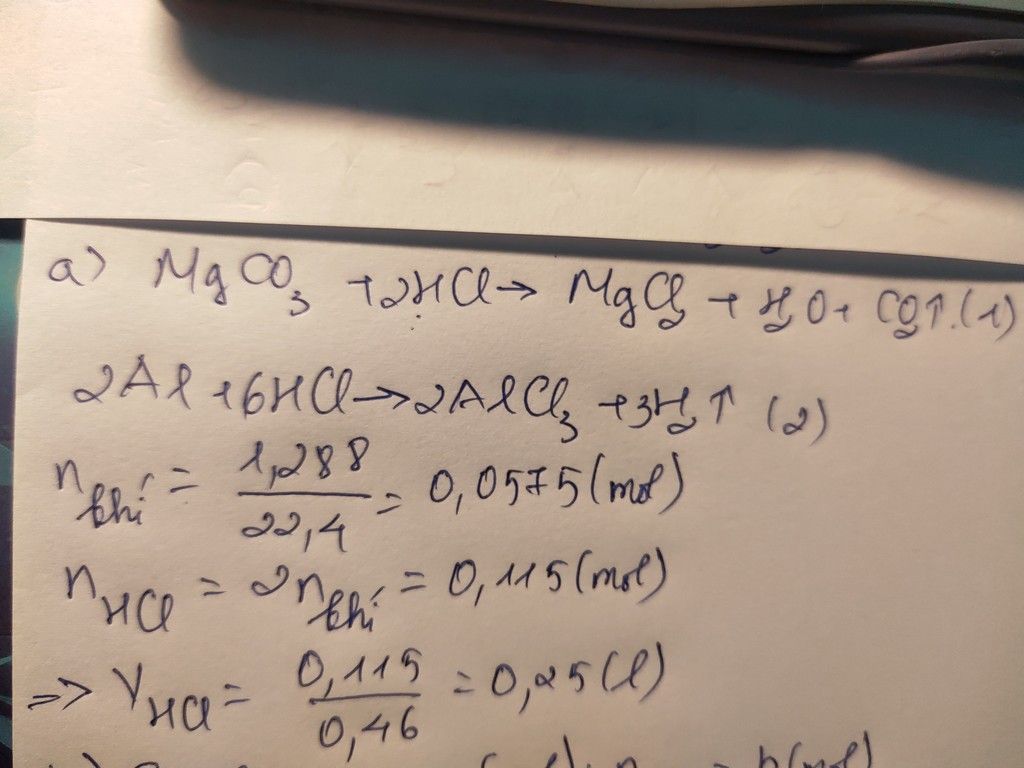 a) MgCO₃ + 2HCl → MgCl₂ + H₂O + CO₂↑ (1)
2Al + 6HCl → 2AlCl₃ + 3H₂↑ (2)
n khí = 1,288 / 22,4 = 0,0575 (mol)
n HCl = 2n khí = 0,115 (mol)
=> V HCl = 0,115 / 0,46 = 0,25 (l)